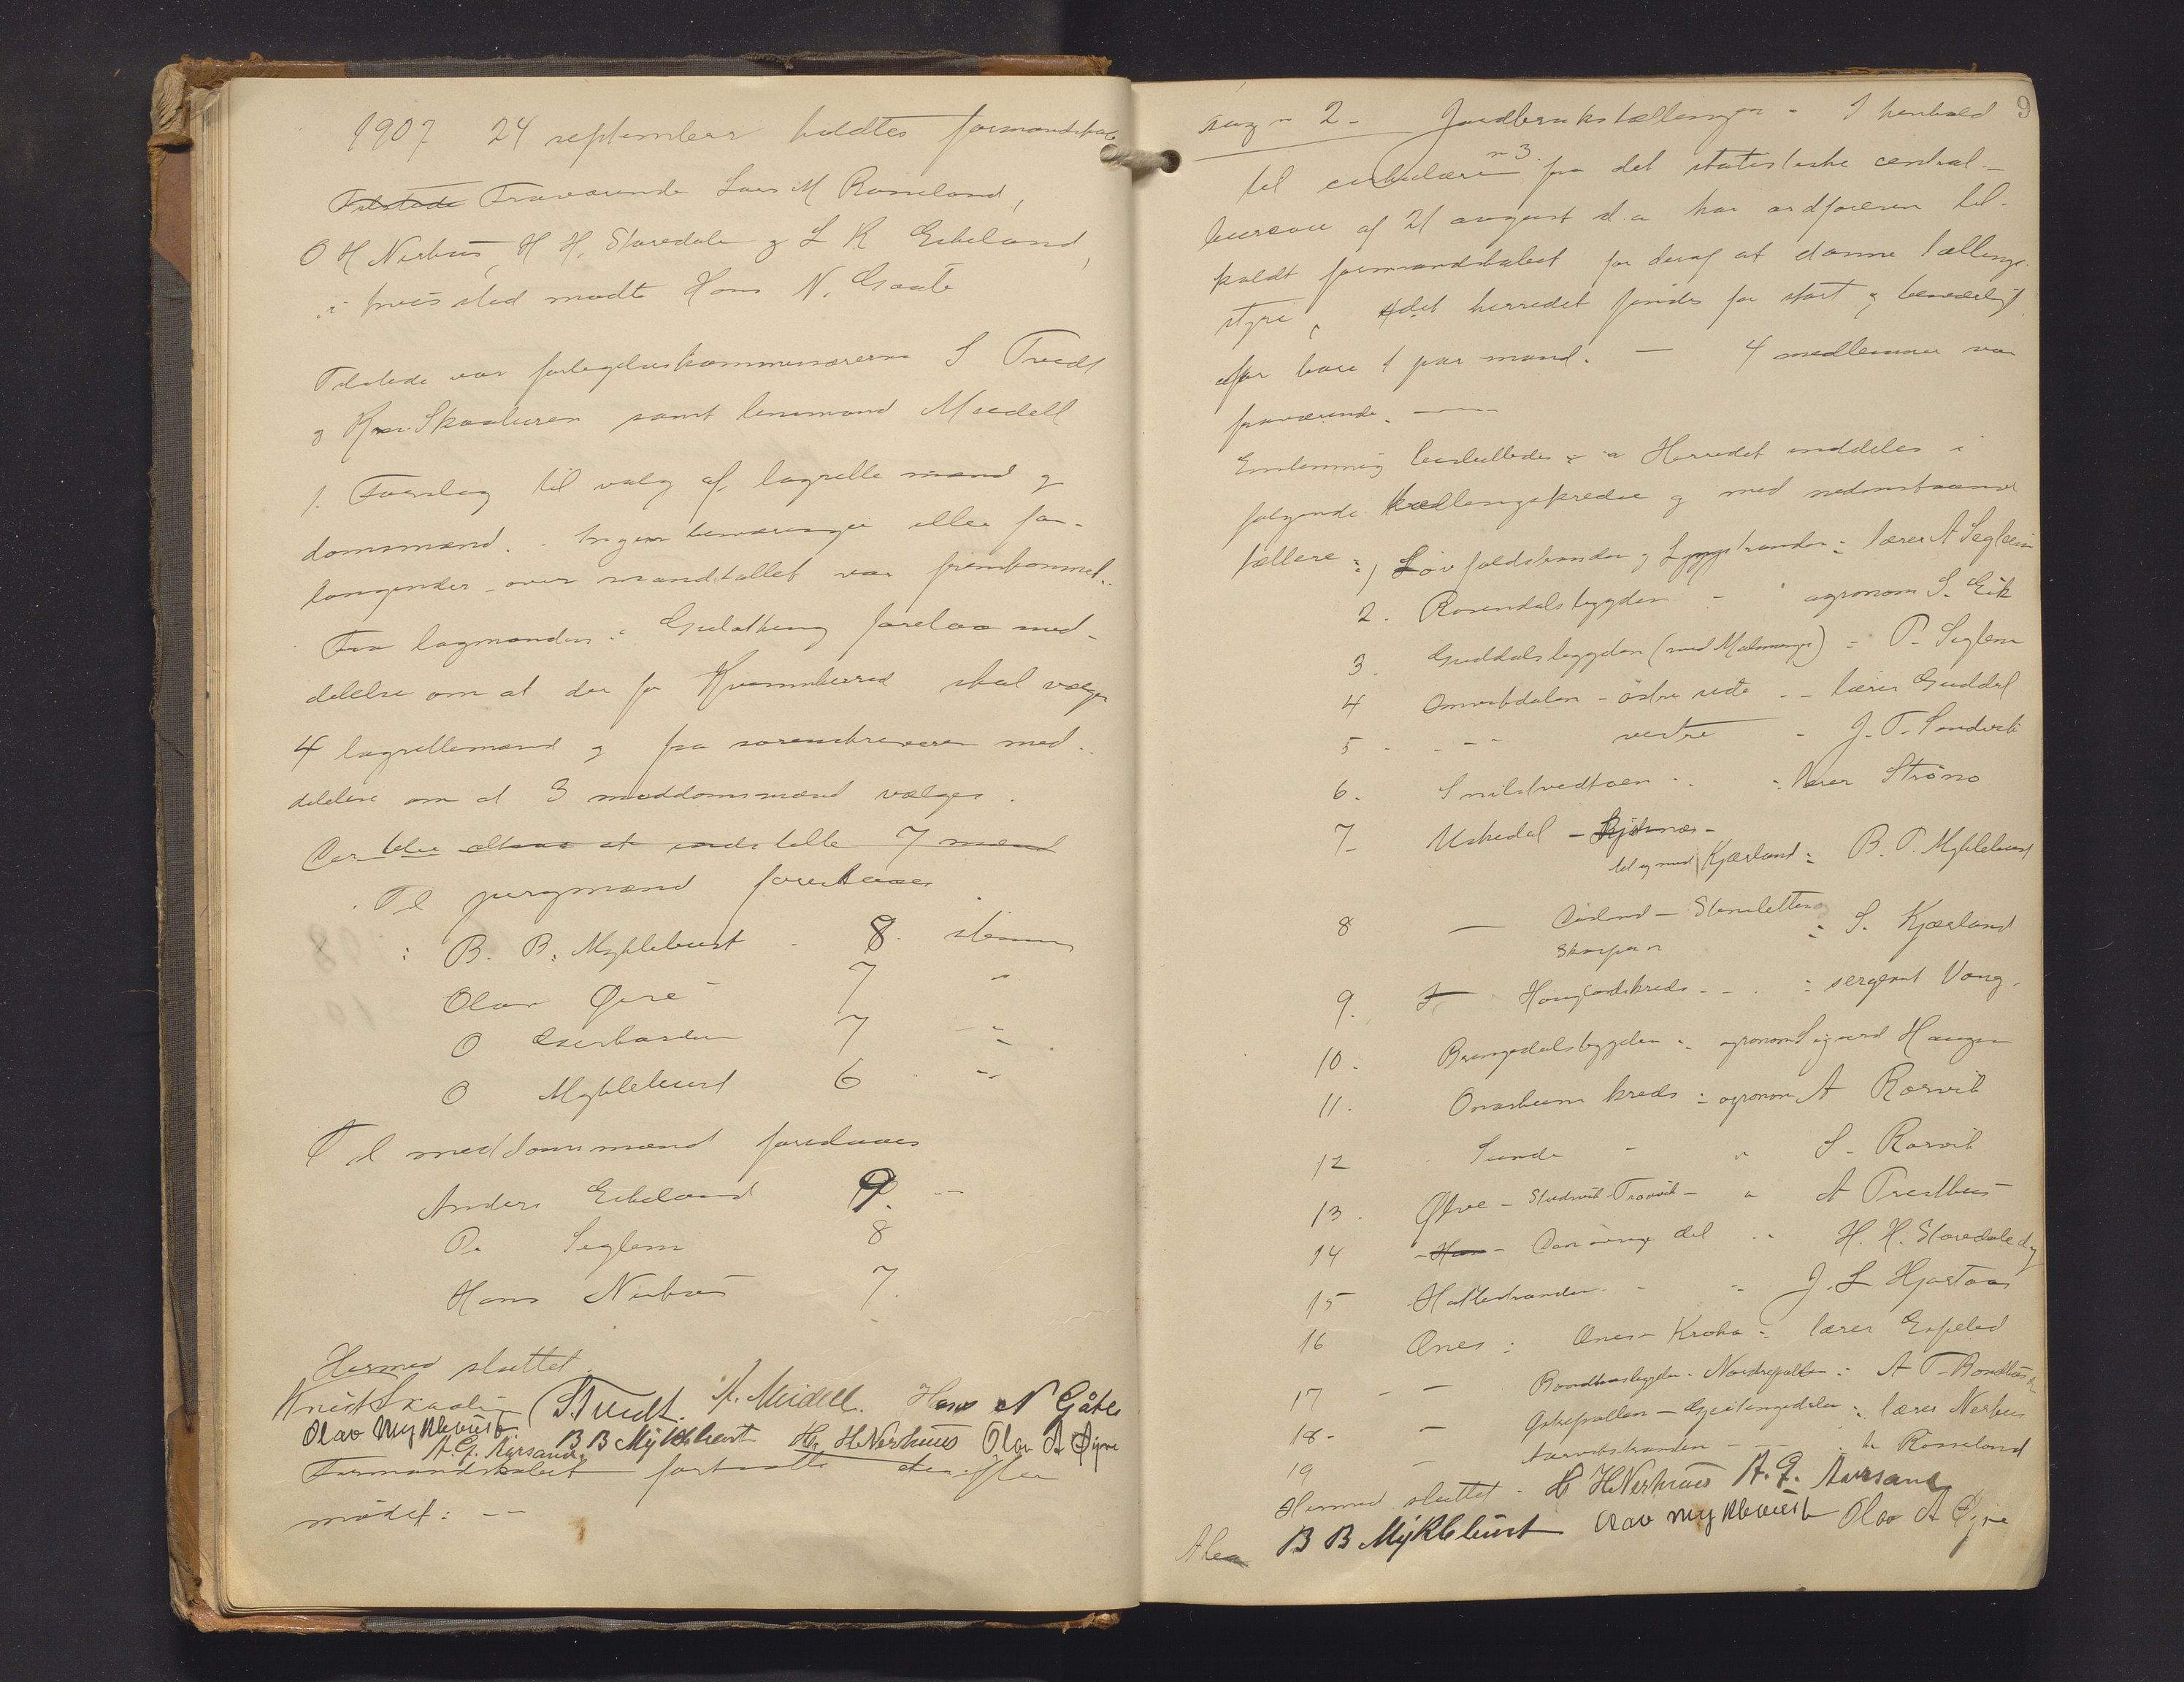 1907 24 september holdtes formandskab
Tilstede Fraværende Lars M Rosseland,
O H Nerhus, H H. Storedale og L R Eikeland,
i hvis sted mødte Hans N. Gaate
Tilstede var forligelseskommissærerne S Tvedt
og Skaaluren samt lensmand Meidell
1. Forslag til valg af lagrette mænd og
domsmænd. Ingen bemærninger eller for-
langender over mandtallet var fremkommet.
Fra lagmanden i Gulathing forelaa med-
delelse om at der for Kvinnherred skal vælges
4 lagrettemænd og fra sorenskriveren med-
delelse om at 3 meddomsmænd vælges.
Der blev altsaa at indstille 7 mænd
Til jurymænd foreslaaes
B. B. Myklebust 8 stemmer
Olav Øire 7 "
O 7 "
O Myklebust 6 "
Til meddommænd foreslaaes
Anders Eikeland 9. "
P. Seglem 8
Hans Nerhus 7.
Hermed sluttet.
Knut Skaalur S. Tvedt. A. Meidell. Hans N Gåte
Olav Myklebust
A. G. Aarsand B B Myklebust H. H Nerhus Olav A Øyre
Formandskabet fortsatte derefter
mødet: --
9
sag 2 - Jordbrukstællingen - I henhold
til cirkulære n 3 fra det statistiske central-
bureau af 21 august d.a har ordføreren til-
kaldt formandskabet for deraf at danne tællings-
styre, da det herredet findes for stort og besværligt
for bare 1 par mand. - 4 medlemmer var
fraværende. -
Enstemmig besluttedes - Herredet inddeles i
følgende tællingskredse og med nedenstaaende
tællere: 1 Løvfaldstranden og : lærer A Seglem
2. Rosendalsbygden - agronom S. Eik
3. Guddalsbygden (med Malmanger) = P. Seglem
4 Omvikdalen - østre side - lærer Guddal
5 - - - vestre - J. T. Sandvik
6. - lærer Strøno
7 Uskedal -
til og med Kjærland: B. T. Myklebust
8 - Døsland - Stensletten
= S. Kjærland
9. = sergent Vang.
10. : agronom Sigurd Haugen
11. kreds : agronom A Rørvik
12 Sunde - " S. Rørvik
13. Ølve - - " A Trædhus
14 - Den øvrige del " H. H. Storedale
15 Hattestranden - " J. L Hjortaas
16 Ænes : Ænes - : lærer Espeland
17 - - Bondhusbygden - Nordrepollen : A T. Bondhus
18 - - - : lærer Nerhus
19 - - - Rosseland
Hermed sluttet - H H Nerhus A. G. Aarsand
B B Myklebust Olav Myklebust Olav A Øyre